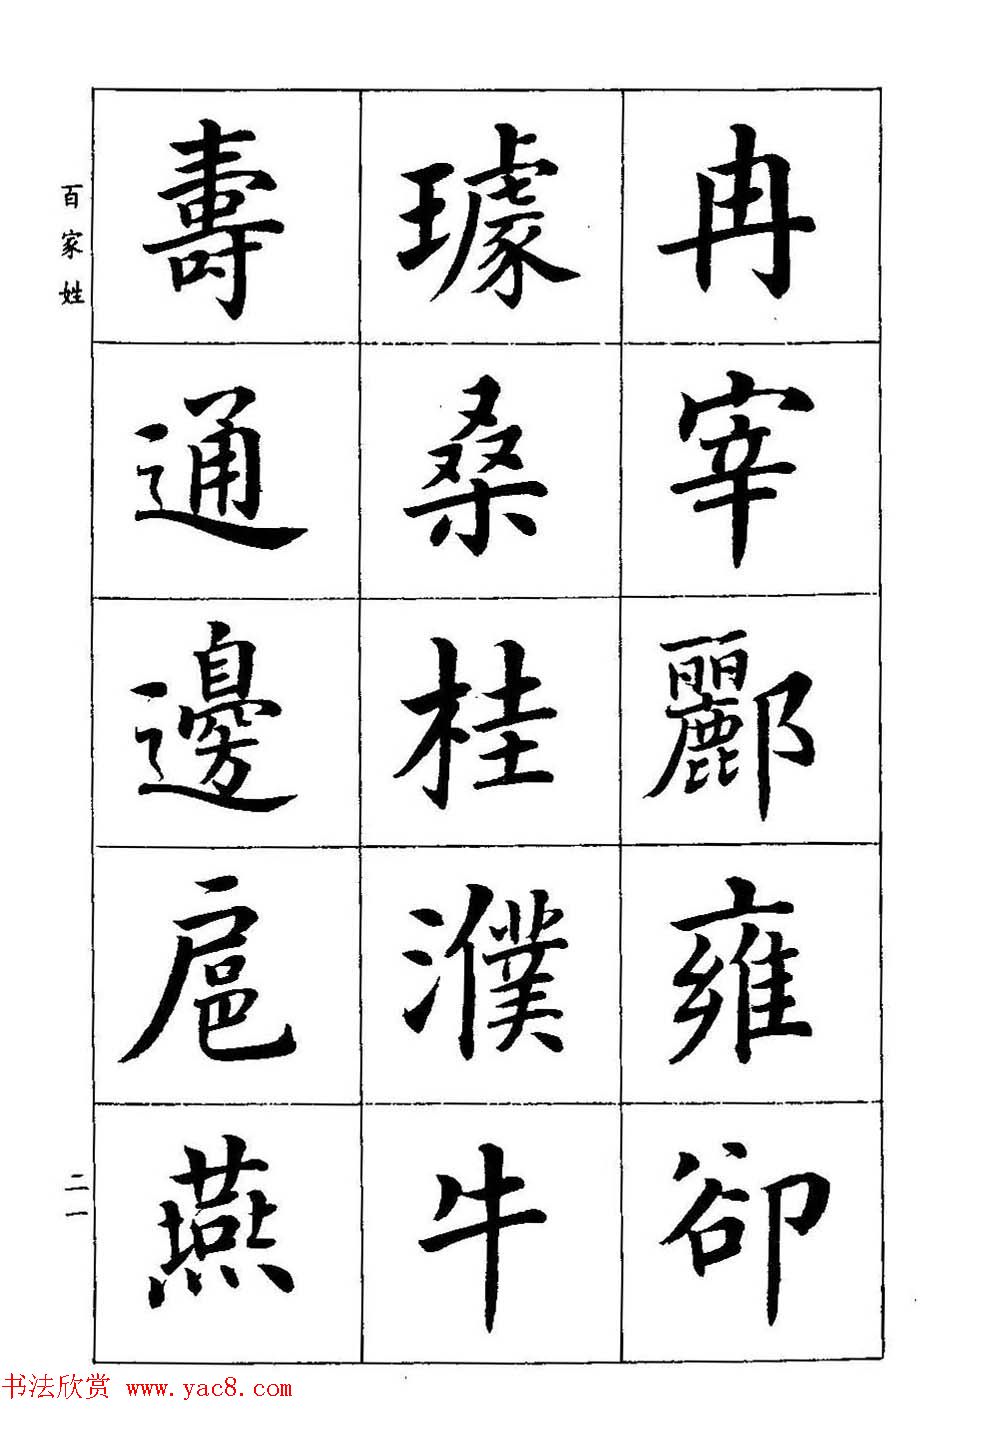 冉宰酈雍卻
璩桑桂濮牛
壽通邊扈燕
百家姓
二一
书法欣赏 www.yac8.com